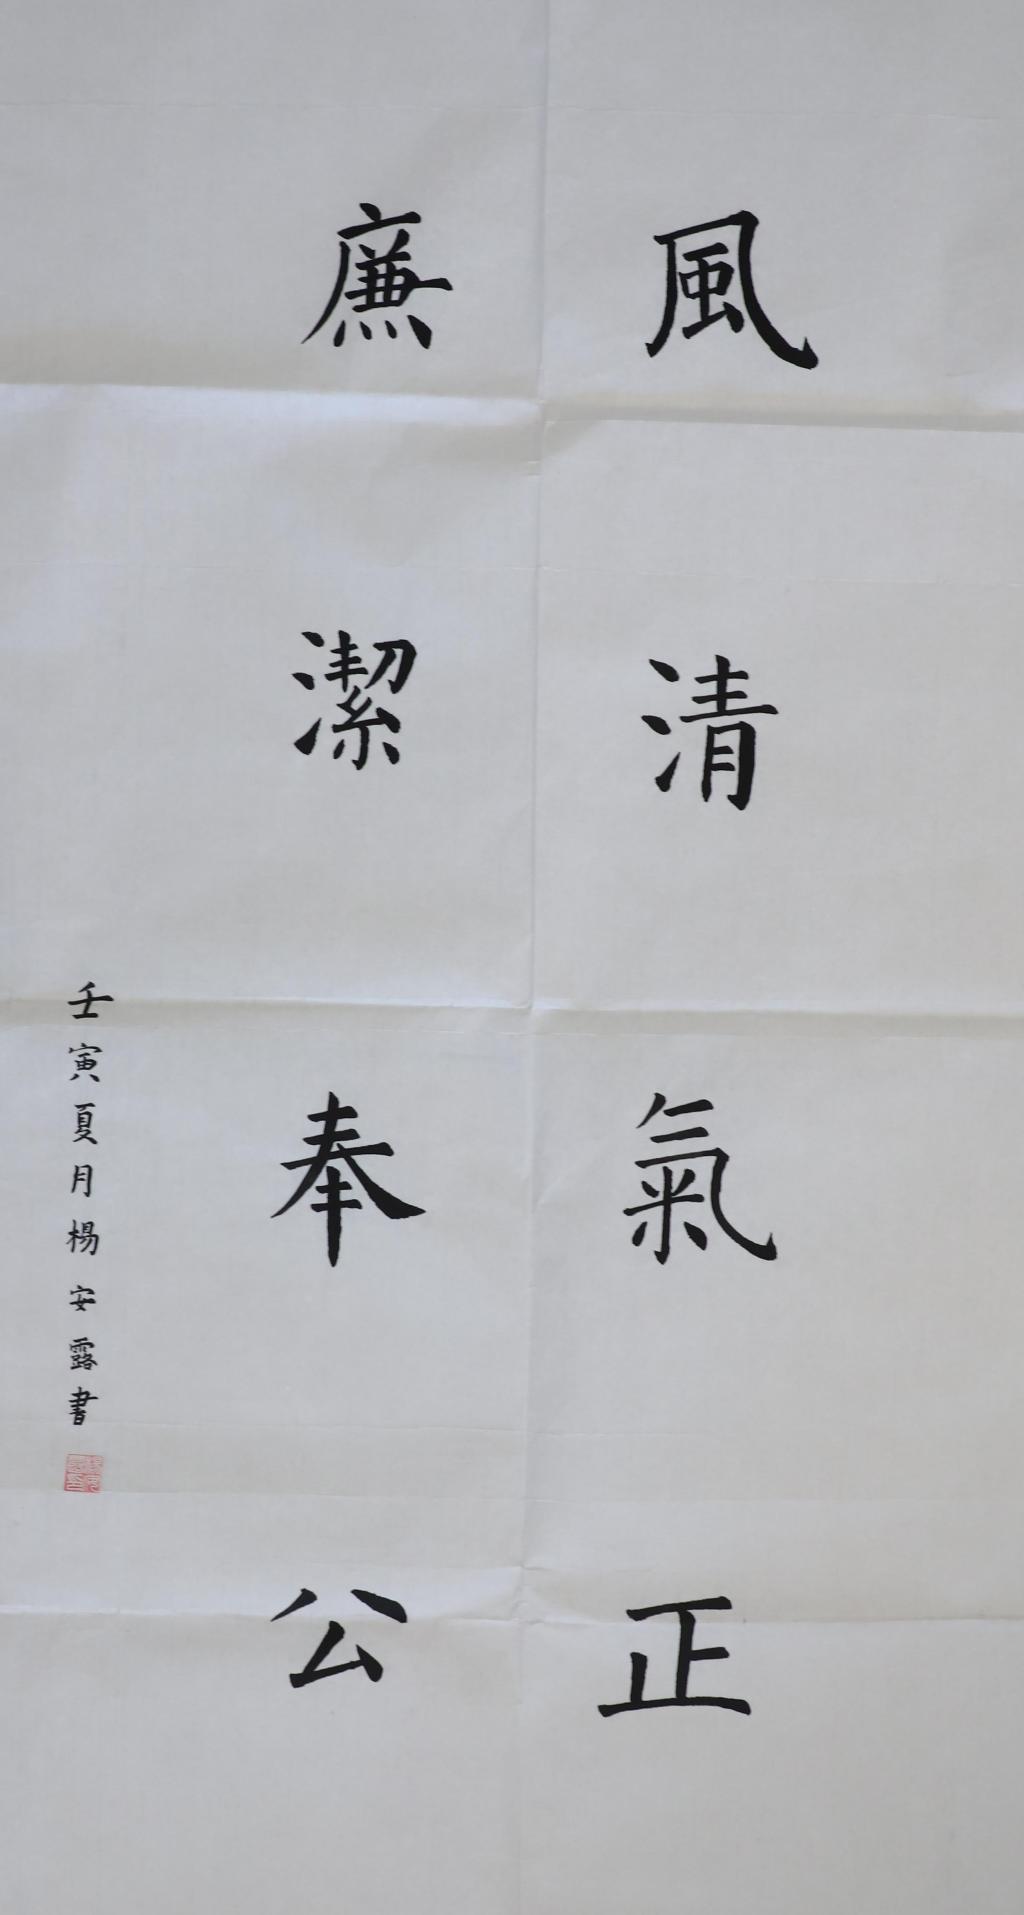 風清氣正
廉潔奉公
壬寅夏月楊安露書